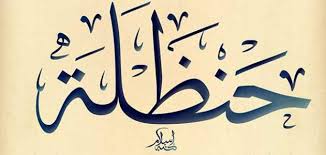 حَنْظَلَة